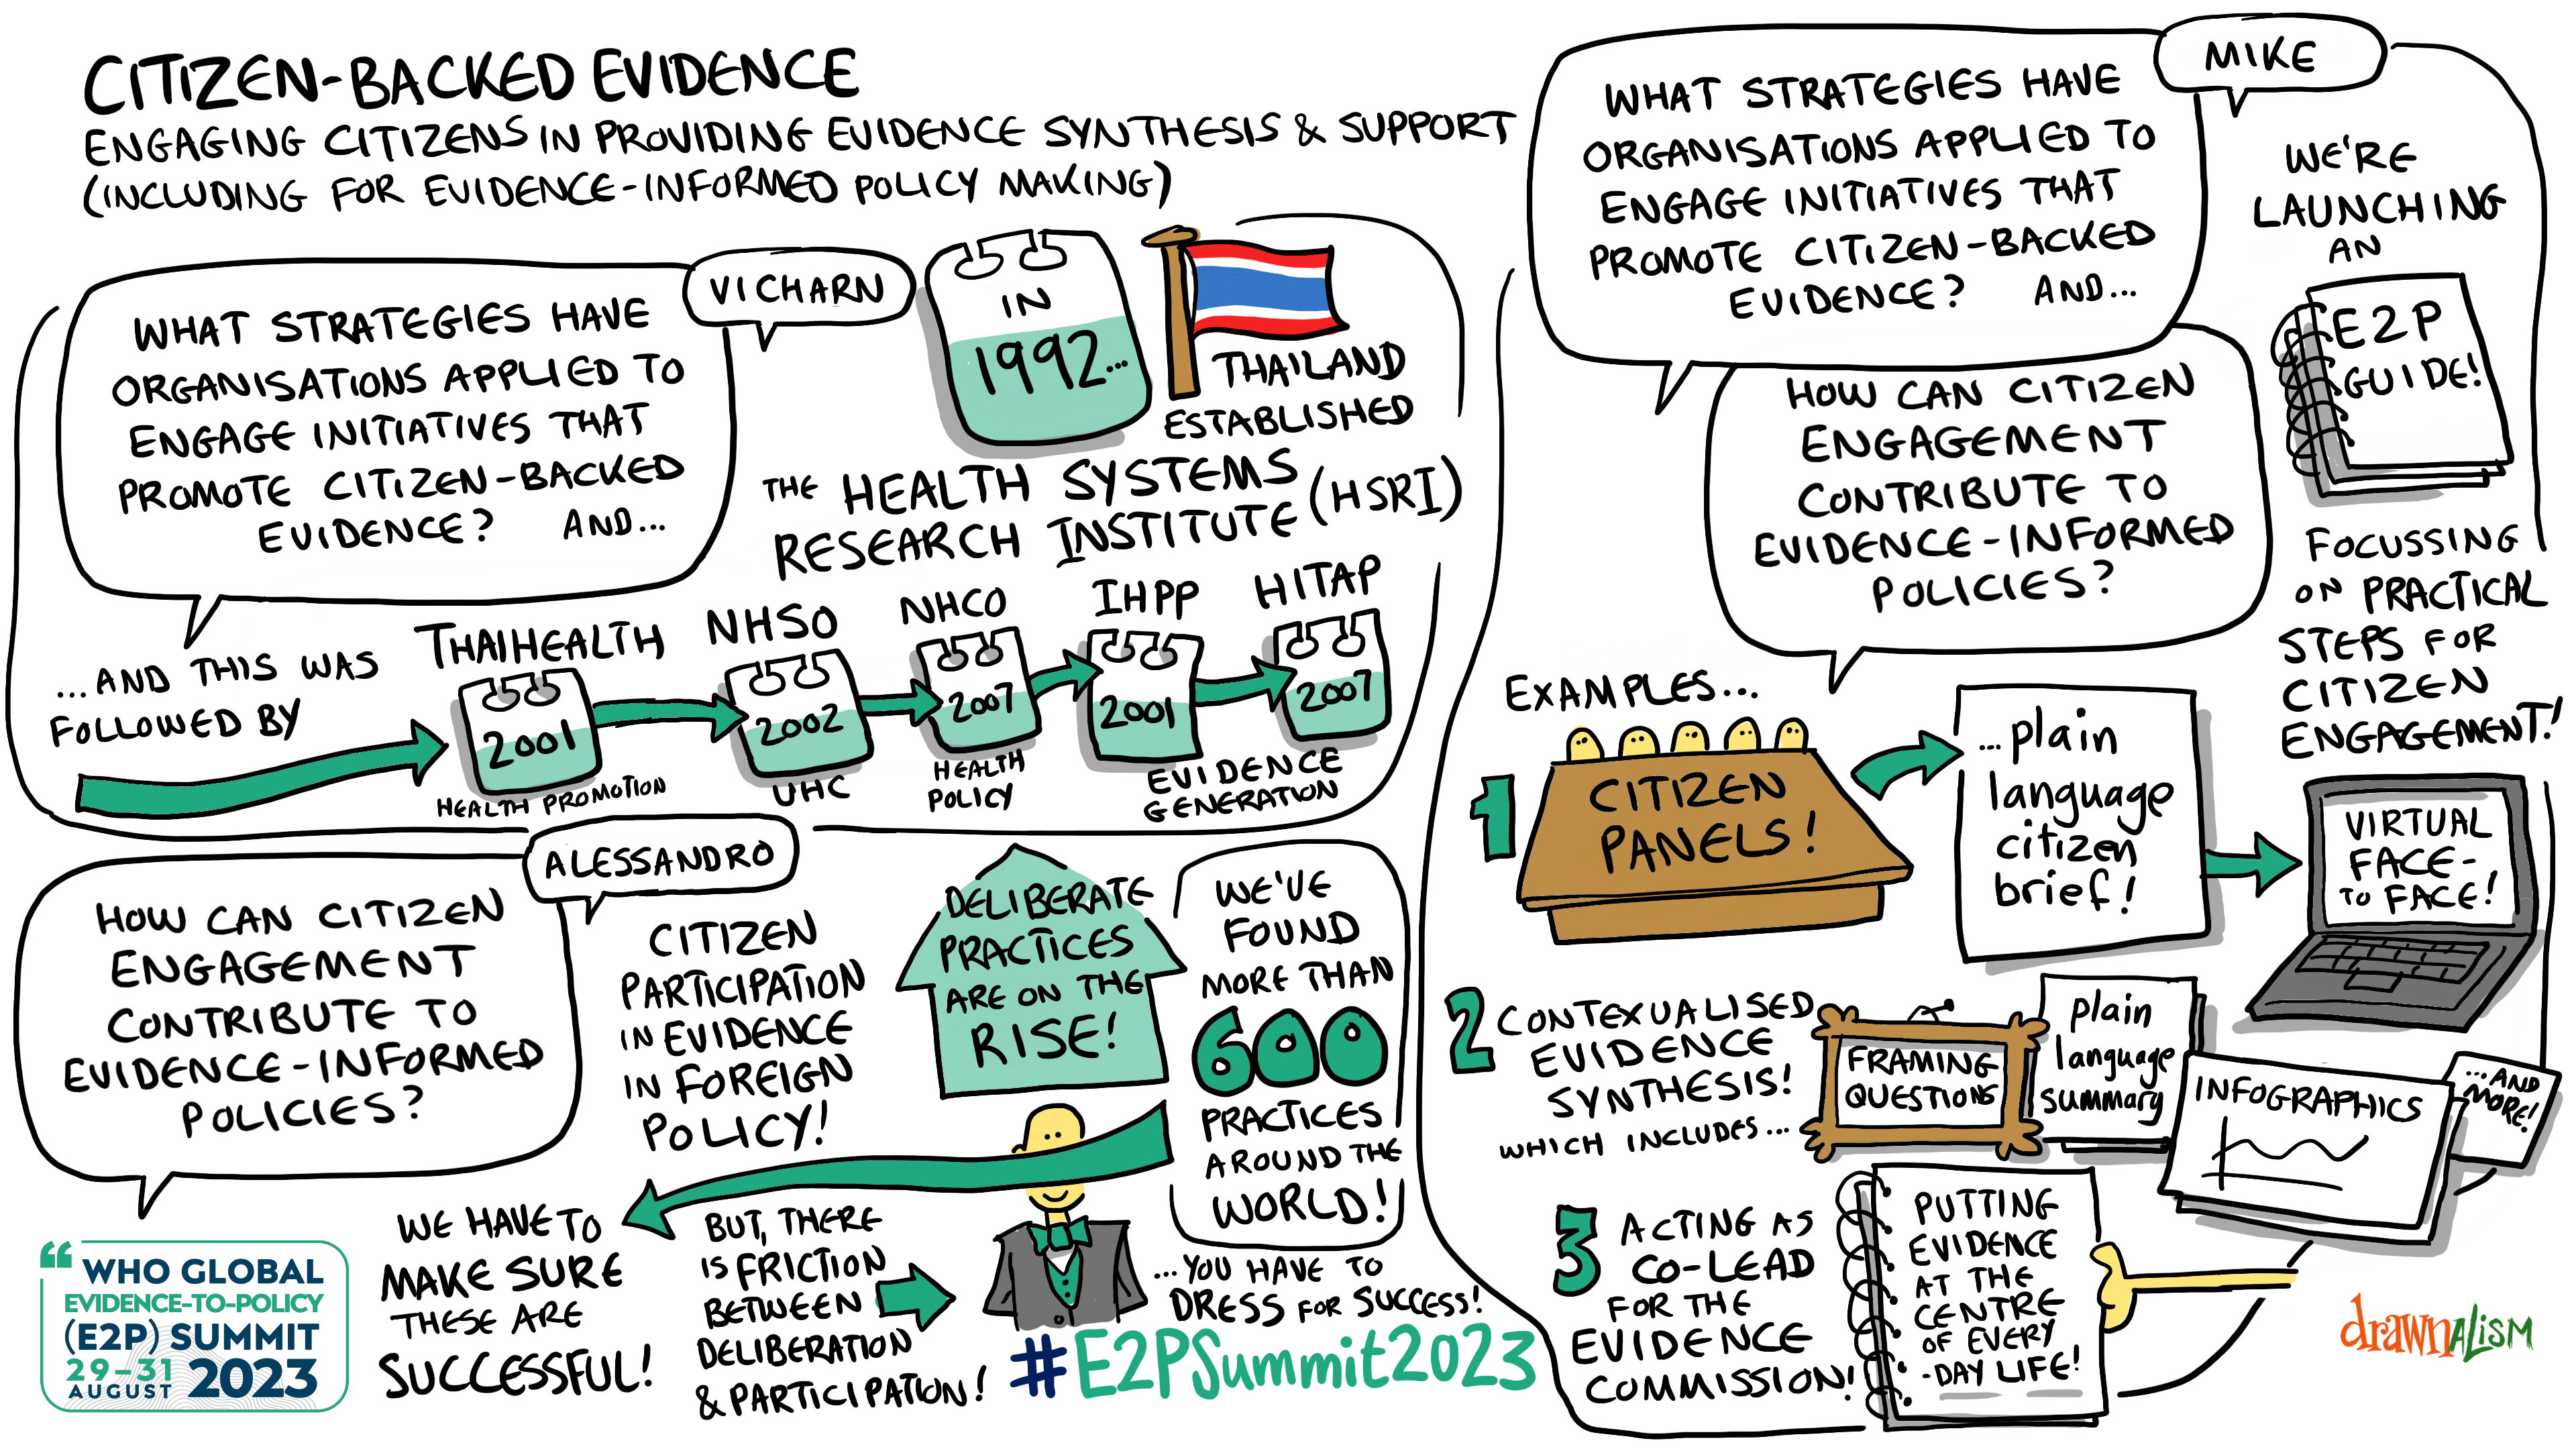 CITIZEN-BACKED EVIDENCE
ENGAGING CITIZENS IN PROVIDING EVIDENCE SYNTHESIS & SUPPORT
(INCLUDING FOR EVIDENCE-INFORMED POLICY MAKING)
VICHARN
WHAT STRATEGIES HAVE
ORGANISATIONS APPLIED TO
ENGAGE INITIATIVES THAT
PROMOTE CITIZEN-BACKED
EVIDENCE? AND...
IN
1992...
THAILAND
ESTABLISHED
THE HEALTH SYSTEMS
RESEARCH INSTITUTE (HSRI)
...AND THIS WAS
FOLLOWED BY
THAIHEALTH
2001
HEALTH PROMOTION
NHSO
2002
UHC
NHCO
2007
HEALTH
POLICY
IHPP
2001
HITAP
2007
EVIDENCE
GENERATION
ALESSANDRO
HOW CAN CITIZEN
ENGAGEMENT
CONTRIBUTE TO
EVIDENCE-INFORMED
POLICIES?
CITIZEN
PARTICIPATION
IN EVIDENCE
IN FOREIGN
POLICY!
DELIBERATE
PRACTICES
ARE ON THE
RISE!
WE'VE
FOUND
MORE THAN
600
PRACTICES
AROUND THE
WORLD!
WE HAVE TO
MAKE SURE
THESE ARE
SUCCESSFUL!
BUT, THERE
IS FRICTION
BETWEEN
DELIBERATION
& PARTICIPATION!
...YOU HAVE TO
DRESS FOR SUCCESS!
#E2PSummit2023
“ WHO GLOBAL
EVIDENCE-TO-POLICY
(E2P) SUMMIT
29-31
AUGUST 2023
MIKE
WHAT STRATEGIES HAVE
ORGANISATIONS APPLIED TO
ENGAGE INITIATIVES THAT
PROMOTE CITIZEN-BACKED
EVIDENCE? AND...
HOW CAN CITIZEN
ENGAGEMENT
CONTRIBUTE TO
EVIDENCE-INFORMED
POLICIES?
WE'RE
LAUNCHING
AN
E2P
GUIDE!
FOCUSSING
ON PRACTICAL
STEPS FOR
CITIZEN
ENGAGEMENT!
EXAMPLES...
1
CITIZEN
PANELS!
...plain
language
citizen
brief!
VIRTUAL
FACE-
TO FACE!
2 CONTEXUALISED
EVIDENCE
SYNTHESIS!
WHICH INCLUDES...
FRAMING
QUESTIONS
plain
language
summary
INFOGRAPHICS
...AND
MORE!
3 ACTING AS
CO-LEAD
FOR THE
EVIDENCE
COMMISSION!
PUTTING
EVIDENCE
AT THE
CENTRE
OF EVERY
-DAY LIFE!
drawnALISM